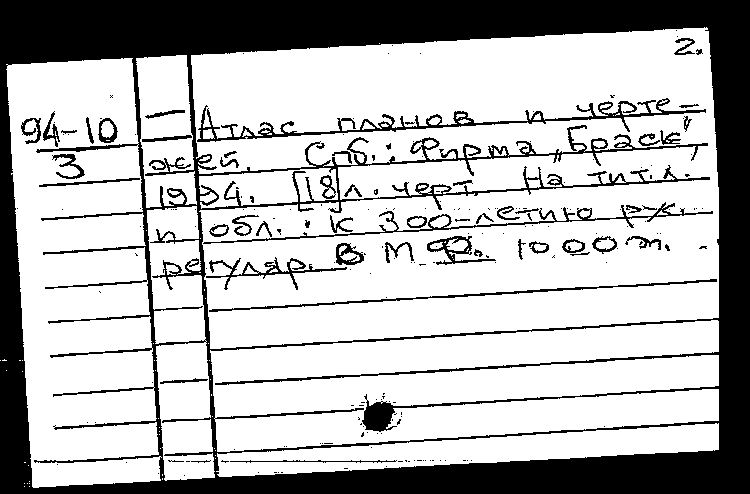 2.
94-10
3
— Атлас планов и черте-
жей. Спб.: Фирма „Браск",
1994. [18]л. черт. На тит.л.
и обл.: К 300-летию рус.
регуляр. В М Ф. 1000э.